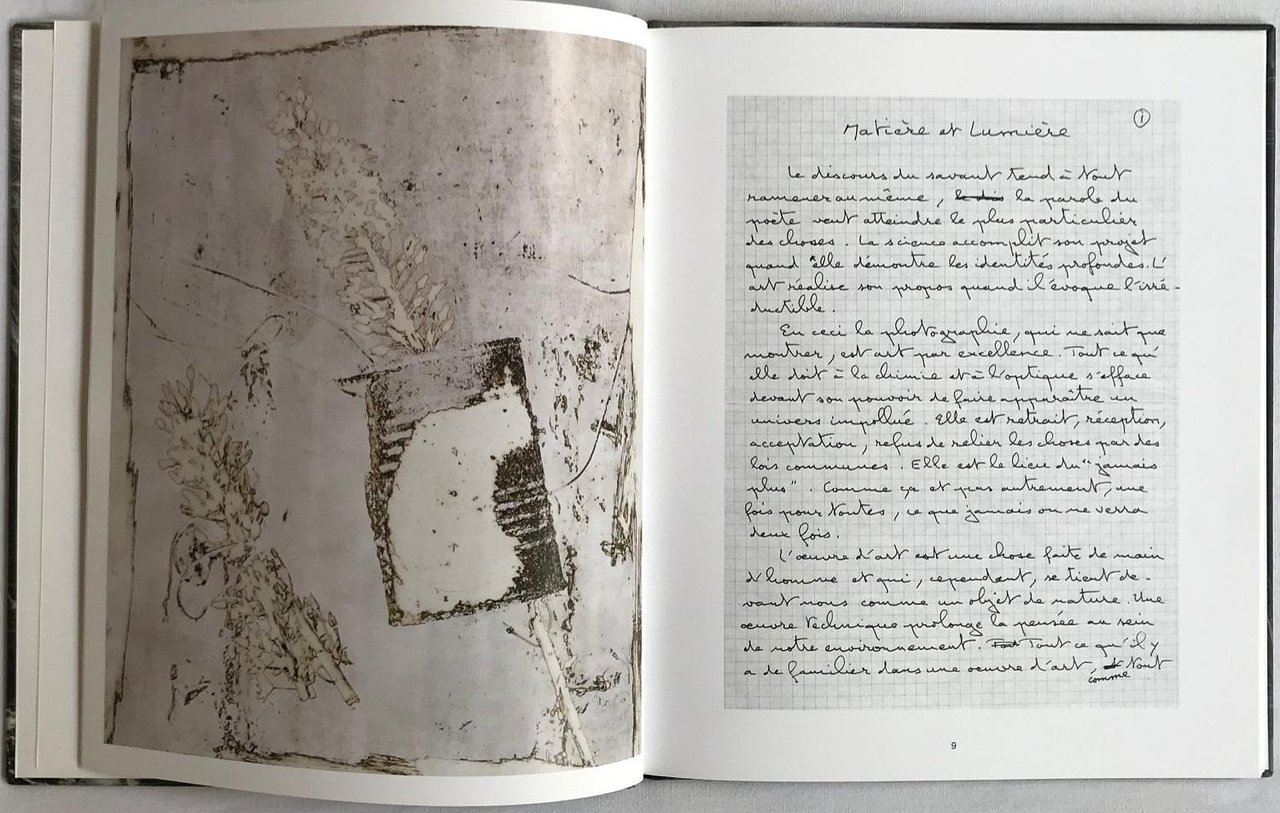 ①
Matière et Lumière
Le discours du savant tend à tout
ramener au même, le dis la parole du
poète veut atteindre le plus particulier
des choses. La science accomplit son projet
quand elle démontre les identités profondes. L'
art réalise son propos quand il évoque l'irré-
ductible.
En ceci la photographie, qui ne sait que
montrer, est art par excellence. Tout ce qu'
elle doit à la chimie et à l'optique s'efface
devant son pouvoir de faire apparaître un
univers impollué. Elle est retrait, réception,
acceptation, refus de relier les choses par des
lois communes. Elle est le lieu du "jamais
plus". Comme ça et pas autrement, une
fois pour toutes, ce que jamais on ne verra
deux fois.
L'œuvre d'art est une chose faite de main
d'homme et qui, cependant, se tient de-
vant nous comme un objet de nature. Une
œuvre technique prolonge la pensée au sein
de notre environnement. Tout ce qu'il y
a de familier dans une oeuvre d'art, comme tout
9